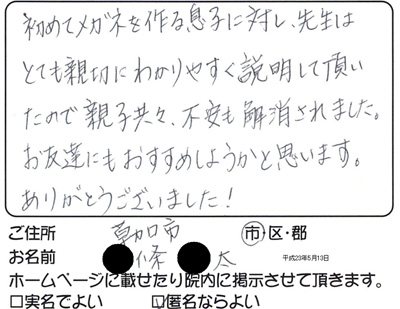 初めてメガネを作る息子に対し、先生は
とても親切にわかりやすく説明して頂い
たので親子共々、不安も解消されました。
お友達にもおすすめしようかと思います。
ありがとうございました!
ご住所 草加市 市・区・郡
お名前 條 太 平成23年5月13日
ホームページに載せたり院内に掲示させて頂きます。
□実名でよい ☑匿名ならよい